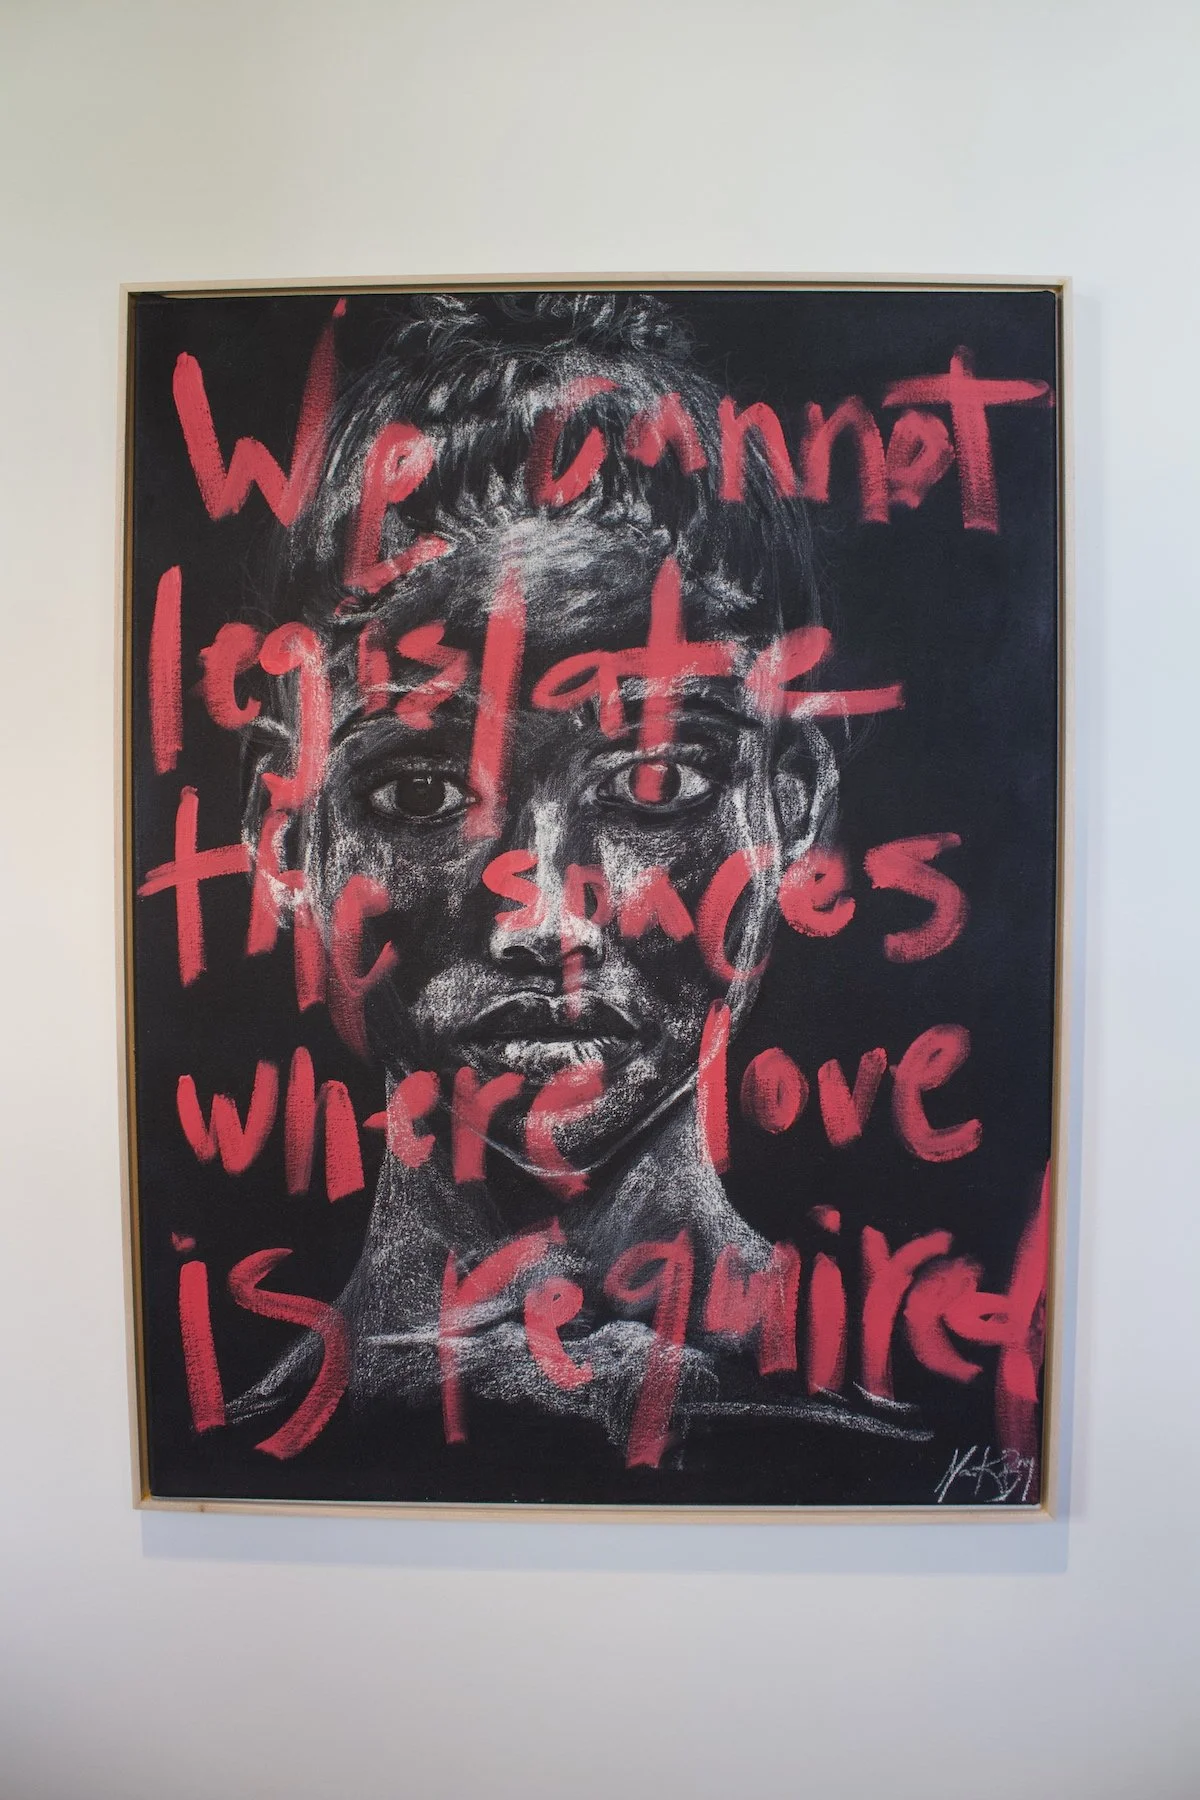 We cannot
legislate
the spaces
where love
is required